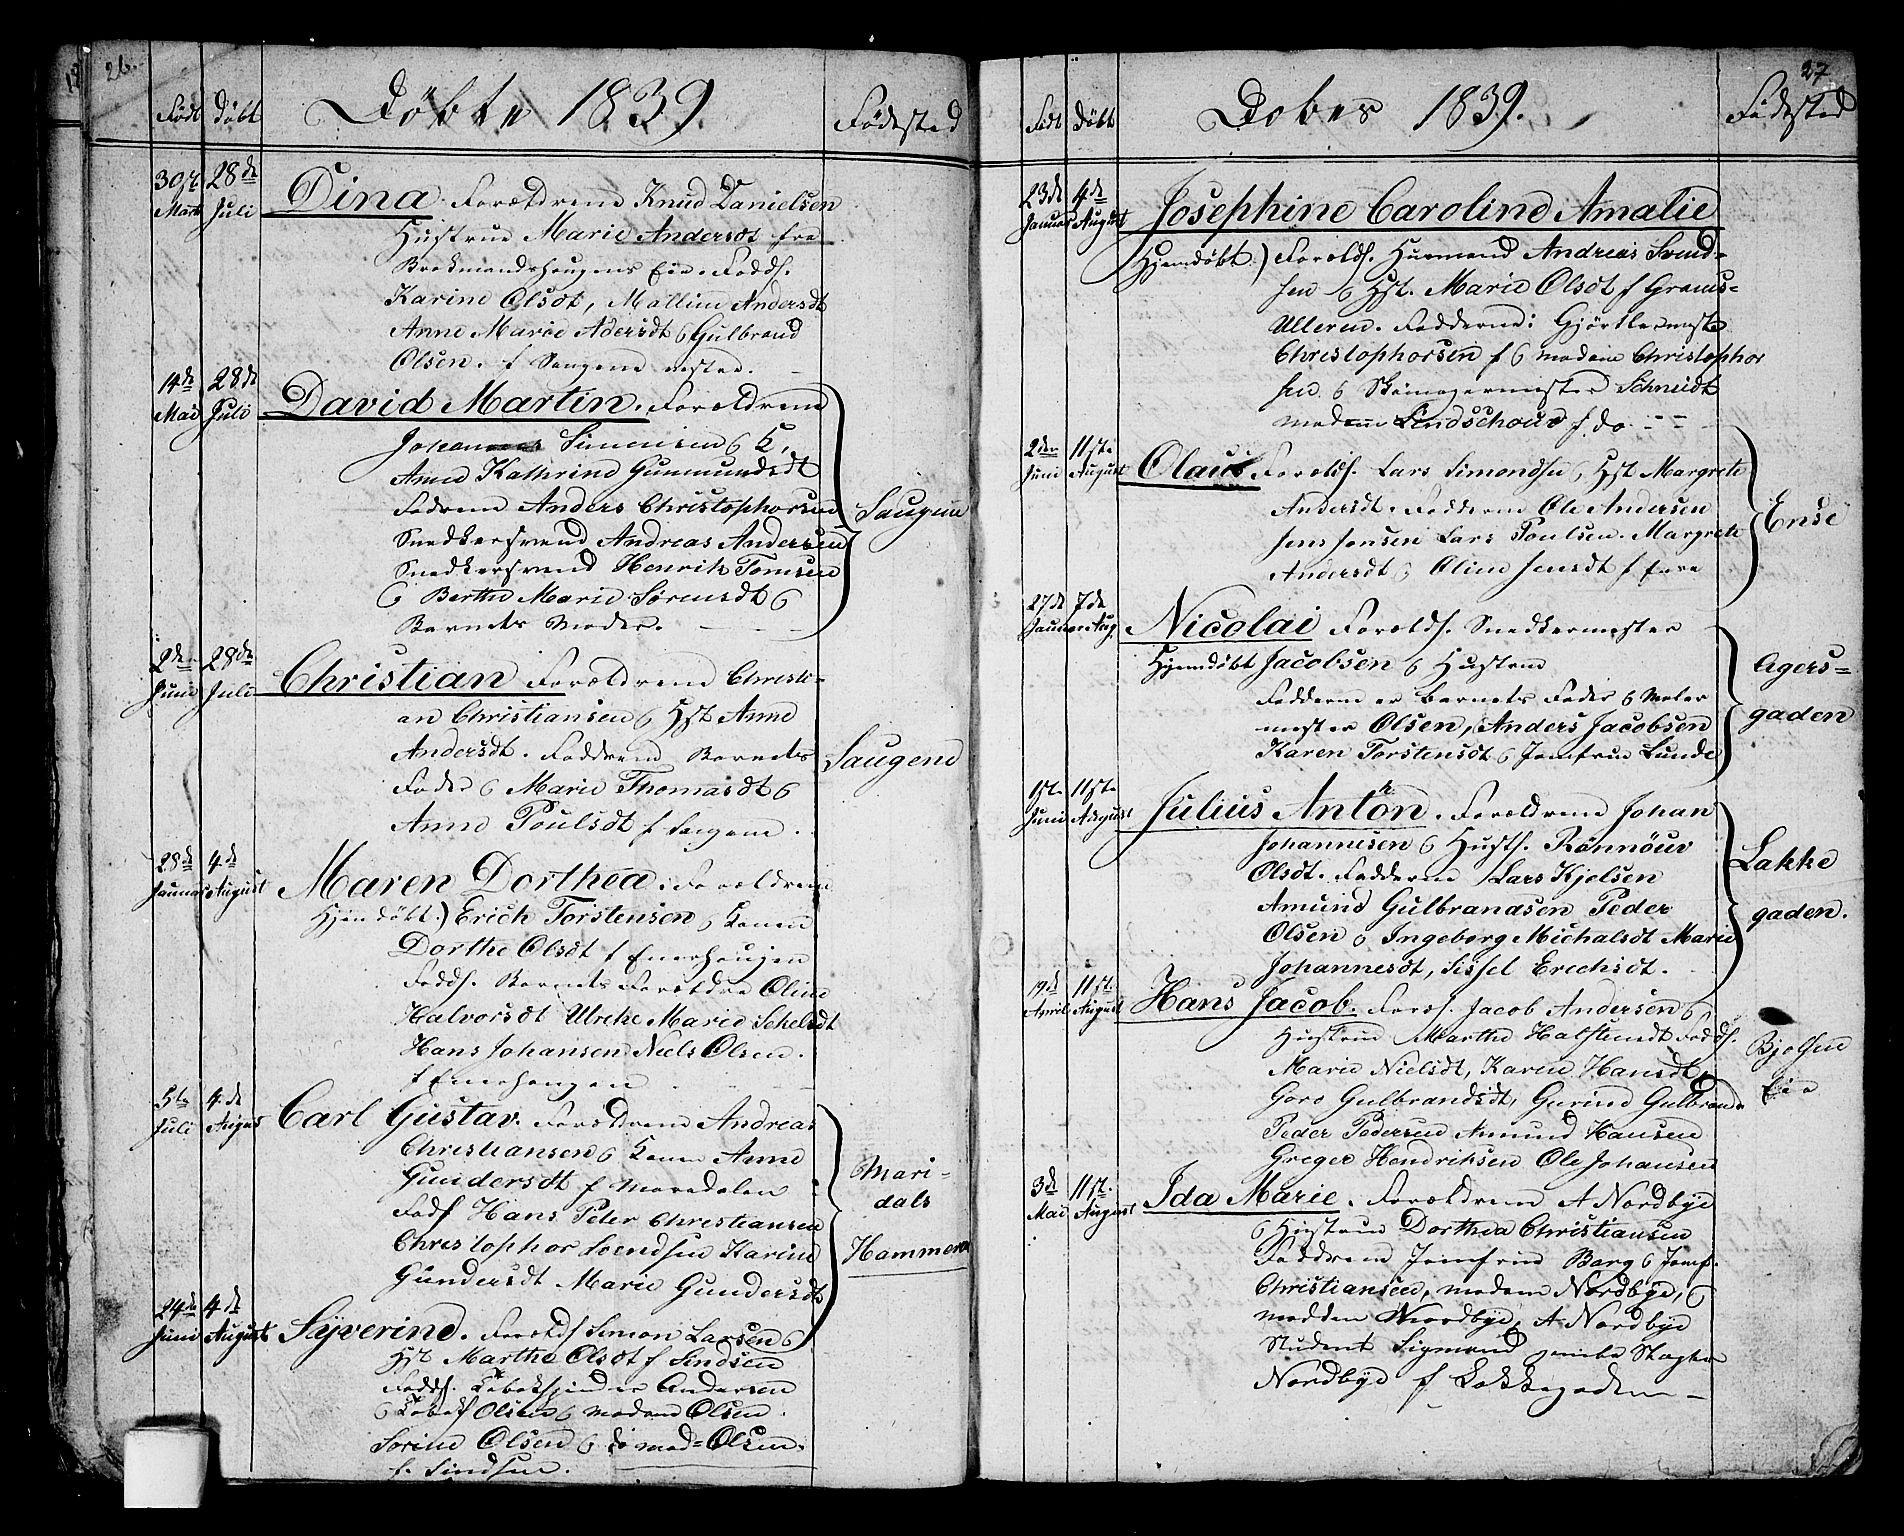 26.
Født Døbt Døbte 1839. Fødested
30te Marts 28de Juli
Dina. Forældrene Knud Danielsen
Hustrue Marie Andersdt fra
Brokmandshougens Eie. Fadds.
Karine Olsdt, Mallene Andersdt
Anne Marie Adersdt o Gulbrand
Olsen. f Saugene nested.
14de Mai 28de Juli
David Martin. Forældrene
Simensen o K,
Anne Kathrine Gunmundsdt
Fadrene Anders Christophersen
Snedkersvend Andreas Andersen
Snedkersvend Henrik Tomsen
o Berthe Marie Sørensdt o
Barnets Moder.
Saugene
2den Juni 28de Juli
Christian Forældrene Christi-
an Christiansen o Hst Anne
Andersdt. Faddrene Barnets
Fader o Marie Thomasdt o
Anne Poulsdt f Saugene.
Saugene
28de Januar 4de August
Maren Dorthea. Forældrene
Hjemdøbt.) Erich Torstensen o Konen
Dorthe Olsdt f Enerhougen
Fadds. Barnets Forældre Oline
Halvorsdt Ulrike Marie
Hans Johansen Niels Olsen.
f Enerhougen
5te Juli 4de August
Carl Gustav. Forældrene Andreas
Christiansen o Konen Anne
Gundersdt f Maredalen
Fadf Hans Peter Christiansen
Christopher Svendsen Karine
Gundersdt Marie Gundersdt
Mari-
dals
Hammeren
24de Juni 4de August
Syverine. Forælds Simon Larsen o
Hst Marthe Olsdt f Sindsen
Fadds. Tobakspinder Andersen
o Tobaksf Olsen o Madame Olsen
Sorine Olsen o do mad= Olsen.
f. Sindsen.
27
Født Døbt Dobes 1839. Fødested
23de Januar 4de August
Josephine Caroline Amalie
Hjemdøbt.) Forælds. Husmand Andreas Svend-
sen o Hst. Marie Olsdt f Grams-
Ulleren. Fadderne: Gjørtlermester
Christophorsen f o madame Christophor
sen o Skomagermester Schmidt
madam Lindschour f. do.
2den Juni 11te August
Olaus Forælds. Lars Simondsen o Hst Margrete
Andersdt. Fadderne Ole Andersen
Jens Jensen Lars Poulsen. Margrete
Andersdt o Oline Jensdt f Ense
Ense
27de Januar 7de Aug.
Nicolai Forælds. Snedkermester
Hjemdøbt Jacobsen o Hustrue
Fadderne er Barnets Fader o Maler
mester Olsen, Anders Jacobsen
Karen Torstensdt o Jomfrue Lunde
Agers-
gaden
1ste Juni 11te August
Julius Anton. Forældrene Johan
Johannesen o Husts. Rønnour
Olsdt. Fadderne Lars Kjelsen
Amund Gulbrandsen Peder
Olsen o Ingeborg Michalsdt Marie
Johannesdt, Sissel Erichsdt.
Lakke
gaden.
19de April 11te August
Hans Jacob. Foræ. Jacob Andersen o
Hustrue Marthe Halstensdt Fadds.
Marie Nielsdt, Karen Hansdt,
Goro Gulbrandsdt, Gurine Gulbrands
Peder Pedersen Amund Hansen
Greger Hendriksen Ole Johansen
Bjølsen
Eie
3de Mai 11te August
Ida Marie. Forældrene A Nordbye
o Hustrue Dorthea Christiansen
Faddrene Jomfrue Borg o Jomf.
Christiansen, madame Nordbye, o
madden Nordbye, A Nordbye
Student Sigmond
Nordbye f Lakkegaden